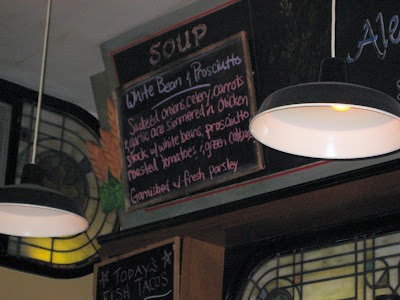 SOUP
White Bean & Prosciutto
Sauteéd onions, celery, carrots
& garlic are simmered in chicken
stock w/ white beans, prosciutto
roasted tomatoes & green cabbage
Garnished w/ fresh parsley
Ale
TODAY'S
FISH TACOS